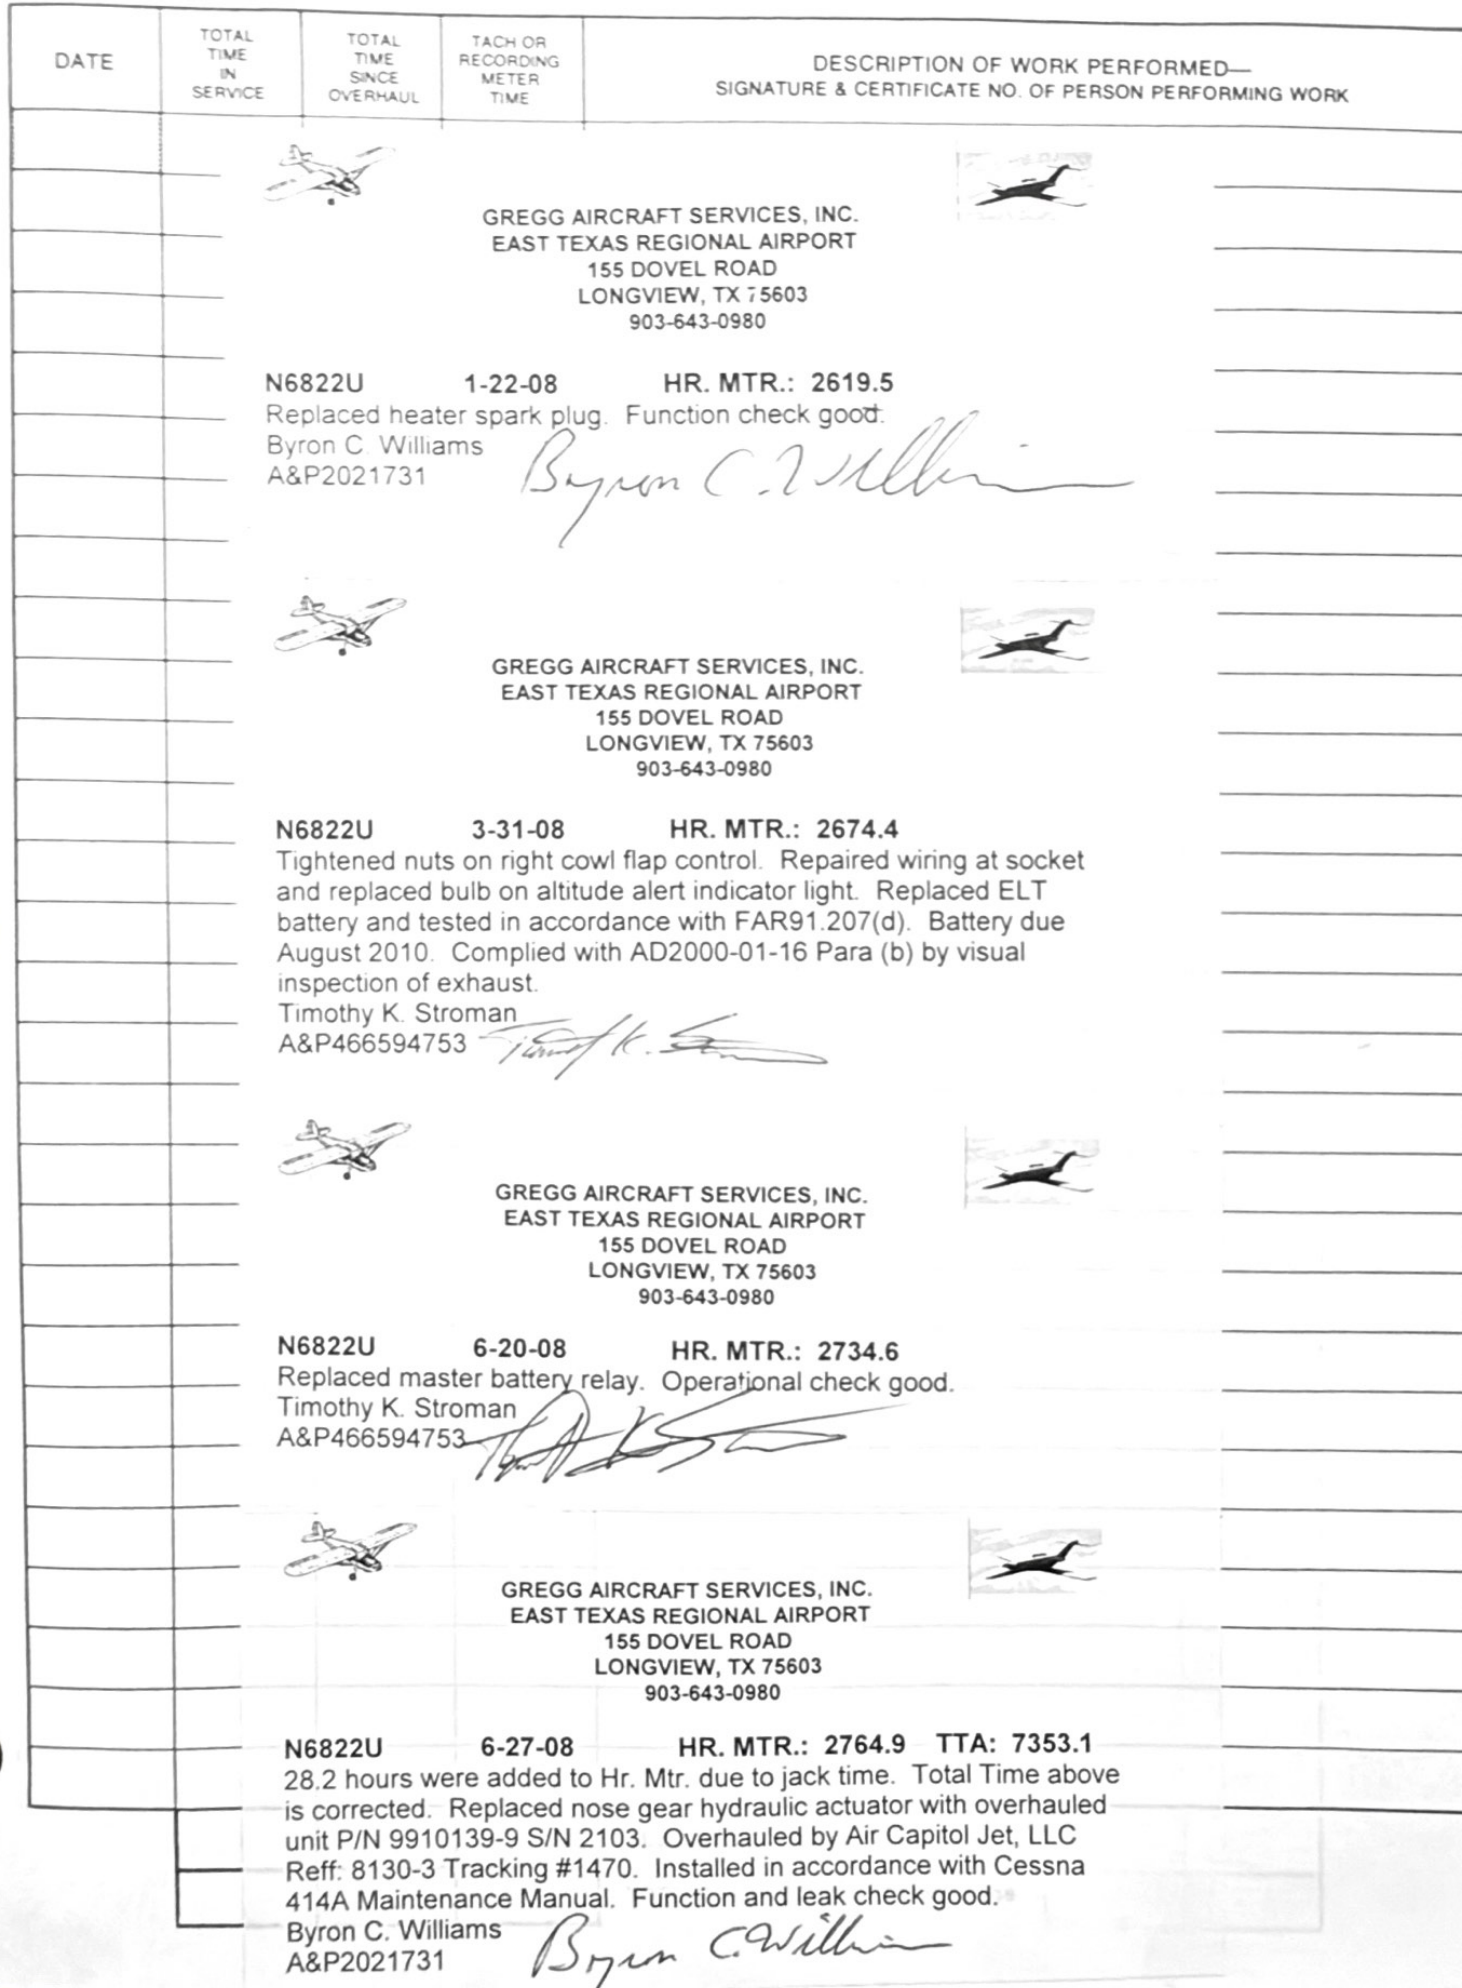 DATE
TOTAL
TIME
IN
SERVICE
TOTAL
TIME
SINCE
OVERHAUL
TACH OR
RECORDING
METER
TIME
DESCRIPTION OF WORK PERFORMED—
SIGNATURE & CERTIFICATE NO. OF PERSON PERFORMING WORK
GREGG AIRCRAFT SERVICES, INC.
EAST TEXAS REGIONAL AIRPORT
155 DOVEL ROAD
LONGVIEW, TX 75603
903-643-0980
N6822U 1-22-08 HR. MTR.: 2619.5
Replaced heater spark plug. Function check good.
Byron C. Williams
A&P2021731 Byron C. Williams
GREGG AIRCRAFT SERVICES, INC.
EAST TEXAS REGIONAL AIRPORT
155 DOVEL ROAD
LONGVIEW, TX 75603
903-643-0980
N6822U 3-31-08 HR. MTR.: 2674.4
Tightened nuts on right cowl flap control. Repaired wiring at socket
and replaced bulb on altitude alert indicator light. Replaced ELT
battery and tested in accordance with FAR91.207(d). Battery due
August 2010. Complied with AD2000-01-16 Para (b) by visual
inspection of exhaust.
Timothy K. Stroman
A&P466594753 Timothy K. Stroman
GREGG AIRCRAFT SERVICES, INC.
EAST TEXAS REGIONAL AIRPORT
155 DOVEL ROAD
LONGVIEW, TX 75603
903-643-0980
N6822U 6-20-08 HR. MTR.: 2734.6
Replaced master battery relay. Operational check good.
Timothy K. Stroman
A&P466594753 Timothy K. Stroman
GREGG AIRCRAFT SERVICES, INC.
EAST TEXAS REGIONAL AIRPORT
155 DOVEL ROAD
LONGVIEW, TX 75603
903-643-0980
N6822U 6-27-08 HR. MTR.: 2764.9 TTA: 7353.1
28.2 hours were added to Hr. Mtr. due to jack time. Total Time above
is corrected. Replaced nose gear hydraulic actuator with overhauled
unit P/N 9910139-9 S/N 2103. Overhauled by Air Capitol Jet, LLC
Reff: 8130-3 Tracking #1470. Installed in accordance with Cessna
414A Maintenance Manual. Function and leak check good.
Byron C. Williams
A&P2021731 Byron C. Williams